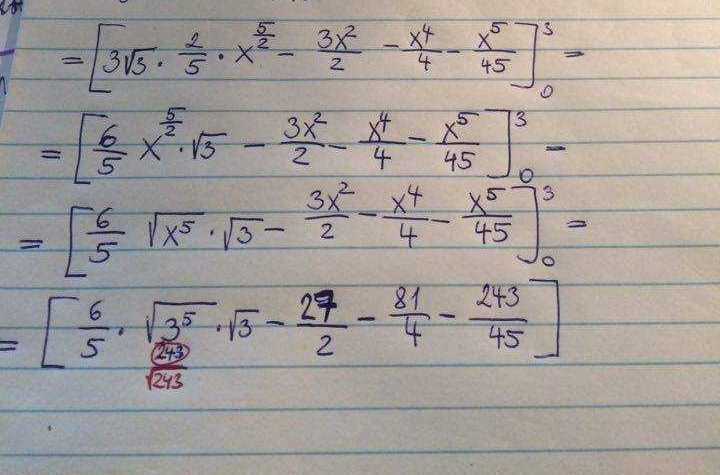 = [ 3√3 · 2/5 · x^(5/2) − 3x²/2 − − x⁴/4 − x⁵/45 ]₀³ =
= [ 6/5 x^(5/2) · √3 − 3x²/2 − x⁴/4 − x⁵/45 ]₀³ =
= [ 6/5 √x⁵ · √3 − 3x²/2 − x⁴/4 − x⁵/45 ]₀³ =
= [ 6/5 · √3⁵ · √3 − 27/2 − 81/4 − 243/45 ]
243
√243